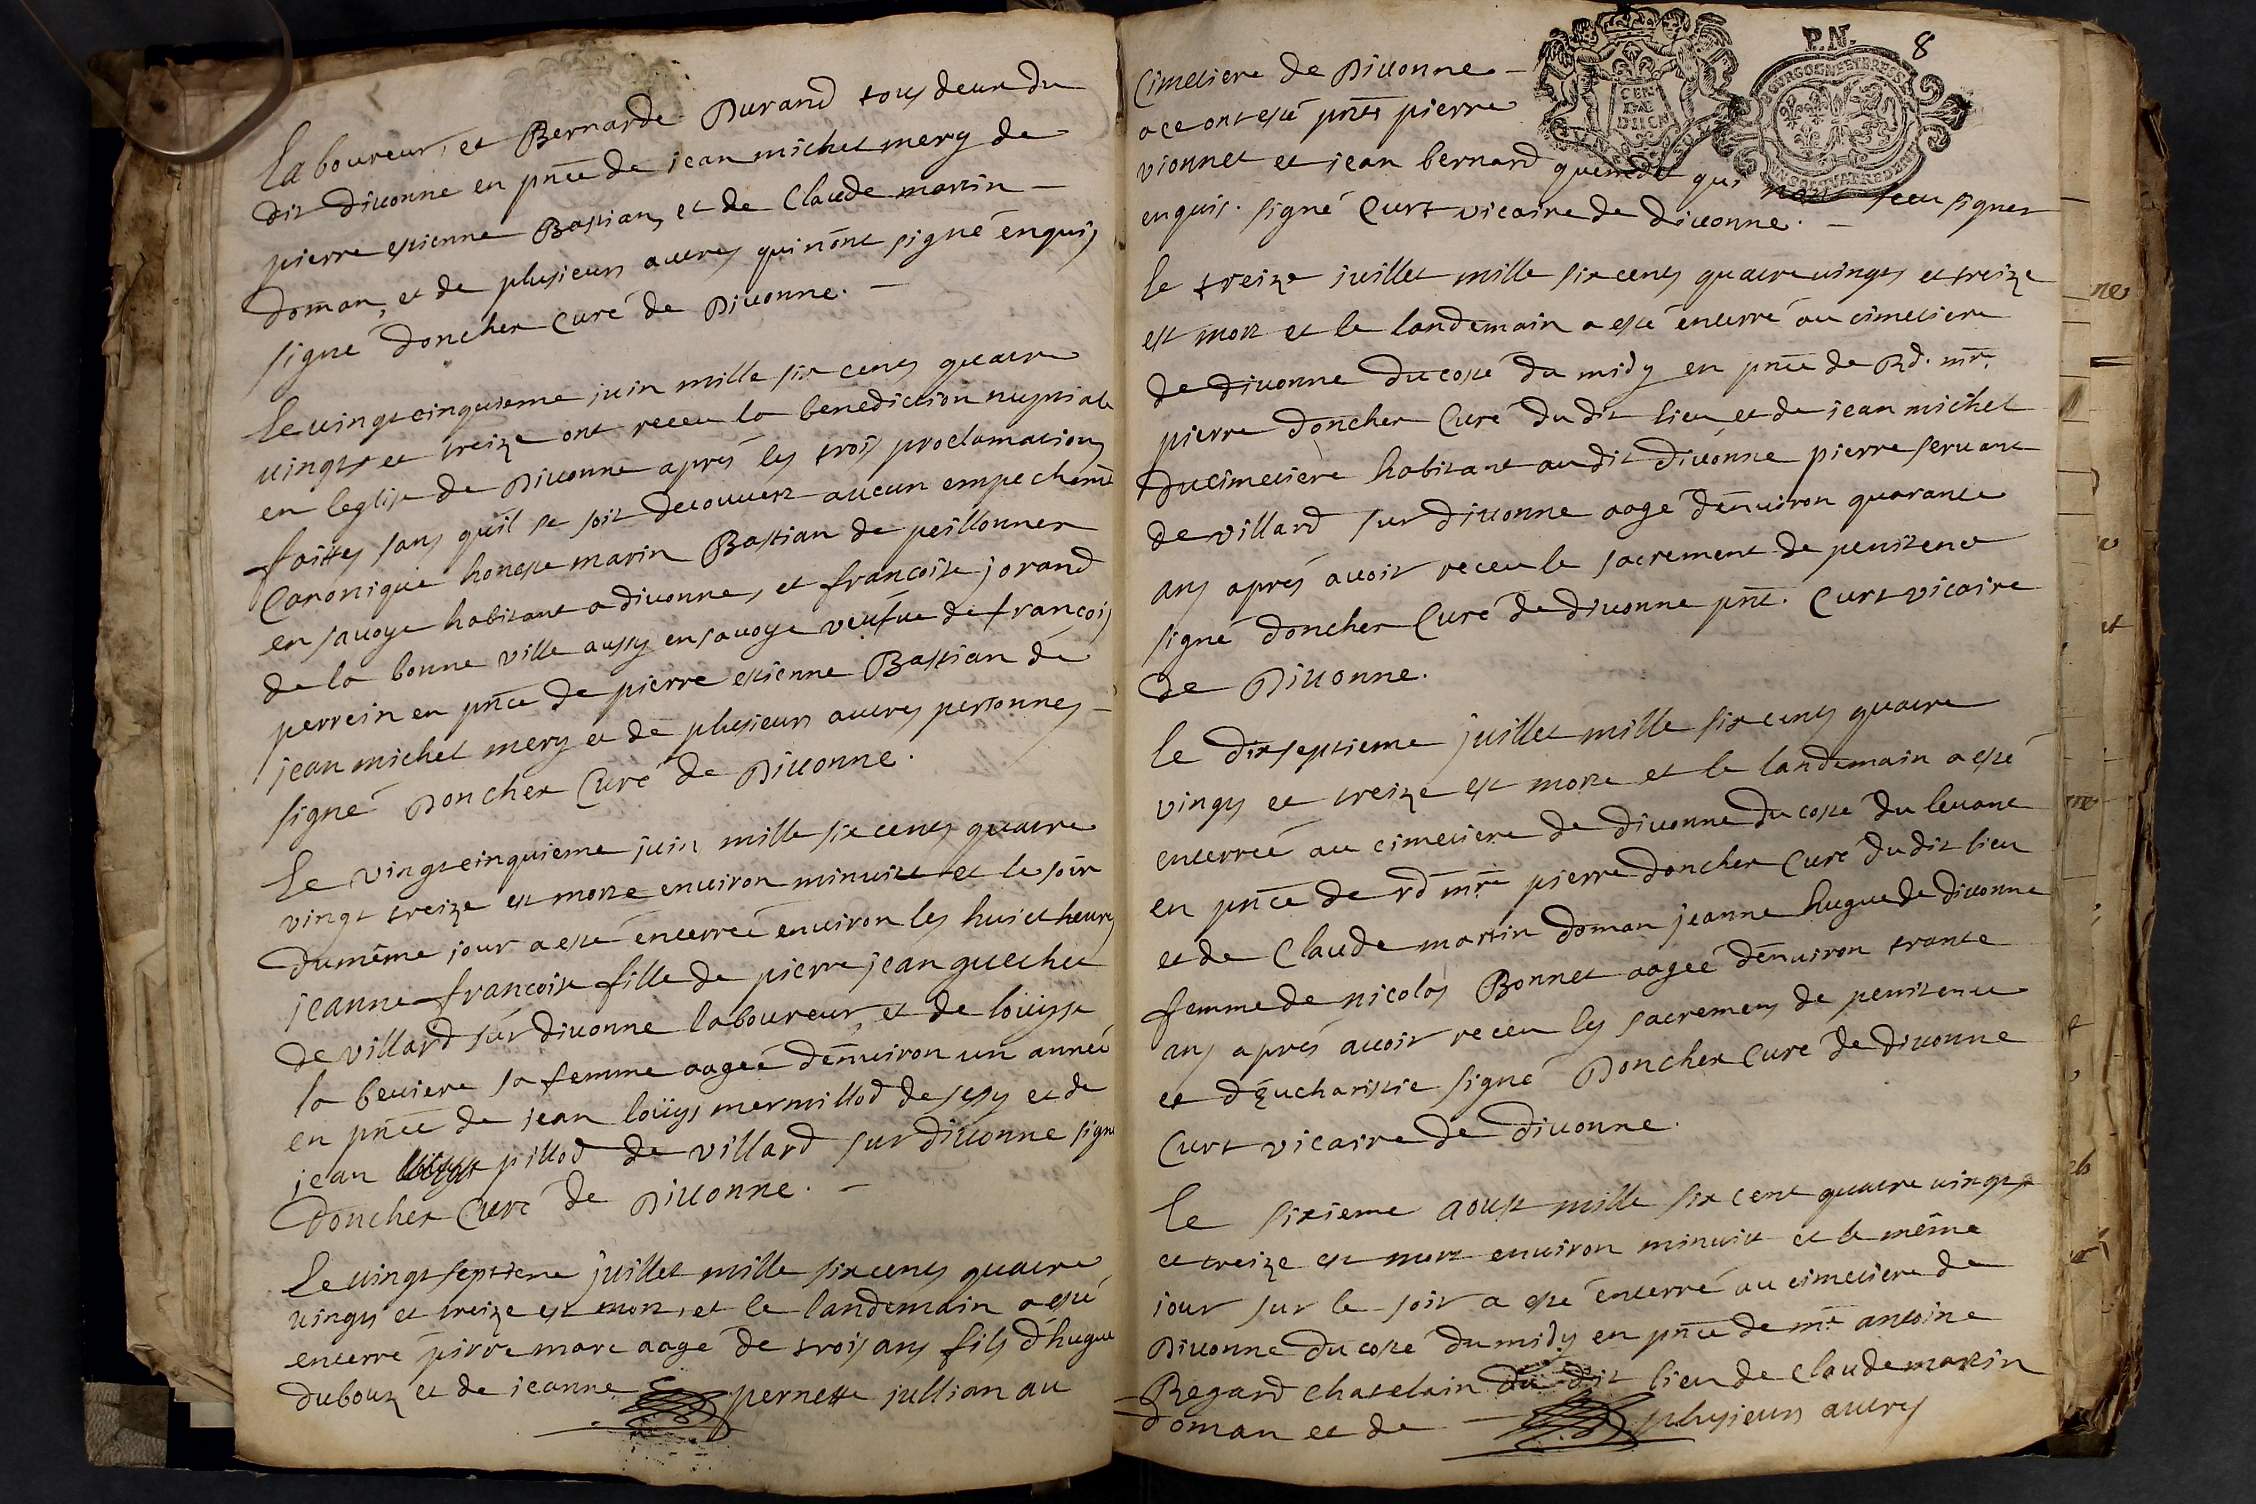 laboureur, et Bernarde Durand tous deux du
dit divonne en pñce de jean michel mery de
pierre estienne Bastian, et de Claude martin –
doman, et de plusieurs autres qui n'ont signé enquis
signé doncher Curé de Divonne. –
Le vingt cinquieme juin mille six cens quatre
vingts et treize ont receu la benediction nuptiale
en leglise de Divonne aprés les trois proclamations
faittes sans qu'il se soit decouvert aucun empechemt
Canonique honeste marin Bastian de peillonnex
en savoye habitant a divonne, et francoise jorand
de la bonne ville aussy en savoye veufve de francois
perrein en pñce de pierre estienne Bastian de
jean michel mery et de plusieurs autres personnes –
signé Doncher Curé de Divonne.
Le vingt cinquieme juin mille six cens quatre
vingt treize est morte environ minuict et le soir
du même jour a esté enterreé environ les huict heures
jeanne francoise fille de pierre jean guechet
de villard sur divonne laboureur, et de loüyse
la beviere sa femme aageé d'environ un année
en pñce de jean loüys mermillod de sessy et de
jean pillod de villard sur divonne signé
Doncher Curé de Divonne. –
Le vingt septieme juillet mille six cens quatre
vingts et treize est mort, et le landemain a esté
enterré pierre marc aagé de trois ans fils d'hugue
dubout et de jeanne pernette jullian au
8
P.N.
Cimetiere de Divonne –
a ce ont esté pñts pierre
vionnet et jean bernard quemet qui n'ont sceu signer
enquis. signé Curt vicaire de divonne. –
le treize juillet mille six cens quatre vingts et treize
est mort et le landemain a esté enterré au cimetiere
de divonne du costé du midy en pñce de Rd. mre.
pierre doncher Curé du dit lieu et de jean michel
ducimetiere habitant au dit divonne pierre servant
de villard sur divonne aagé d'environ quarante
ans aprés avoir receu le sacrement de penitence
signé doncher Curé de divonne pñt. Curt vicaire
de Divonne.
le dixseptieme juillet mille six cens quatre
vingts et treize est morte et le landemain a esté
enterreé au cimetiere de divonne du costé du levant
en pñce de rd mre pierre doncher Curé du dit lieu
et de Claude martin doman jeanne hugue de divonne
femme de nicolas Bonnet aageé d'environ trante
ans aprés avoir receu les sacremens de penitence
et d'Eucharistie signé Doncher Curé de divonne
Curt vicaire de divonne.
Le sixieme aoust mille six cent quatre vingts
et treize est mort environ minuict et le même
jour sur le soir a esté enterré au cimetiere de
Divonne du costé du midy en pñce de mre antoine
Regard chatelain du dit lieu de Claude martin
doman et de – plusieurs autres